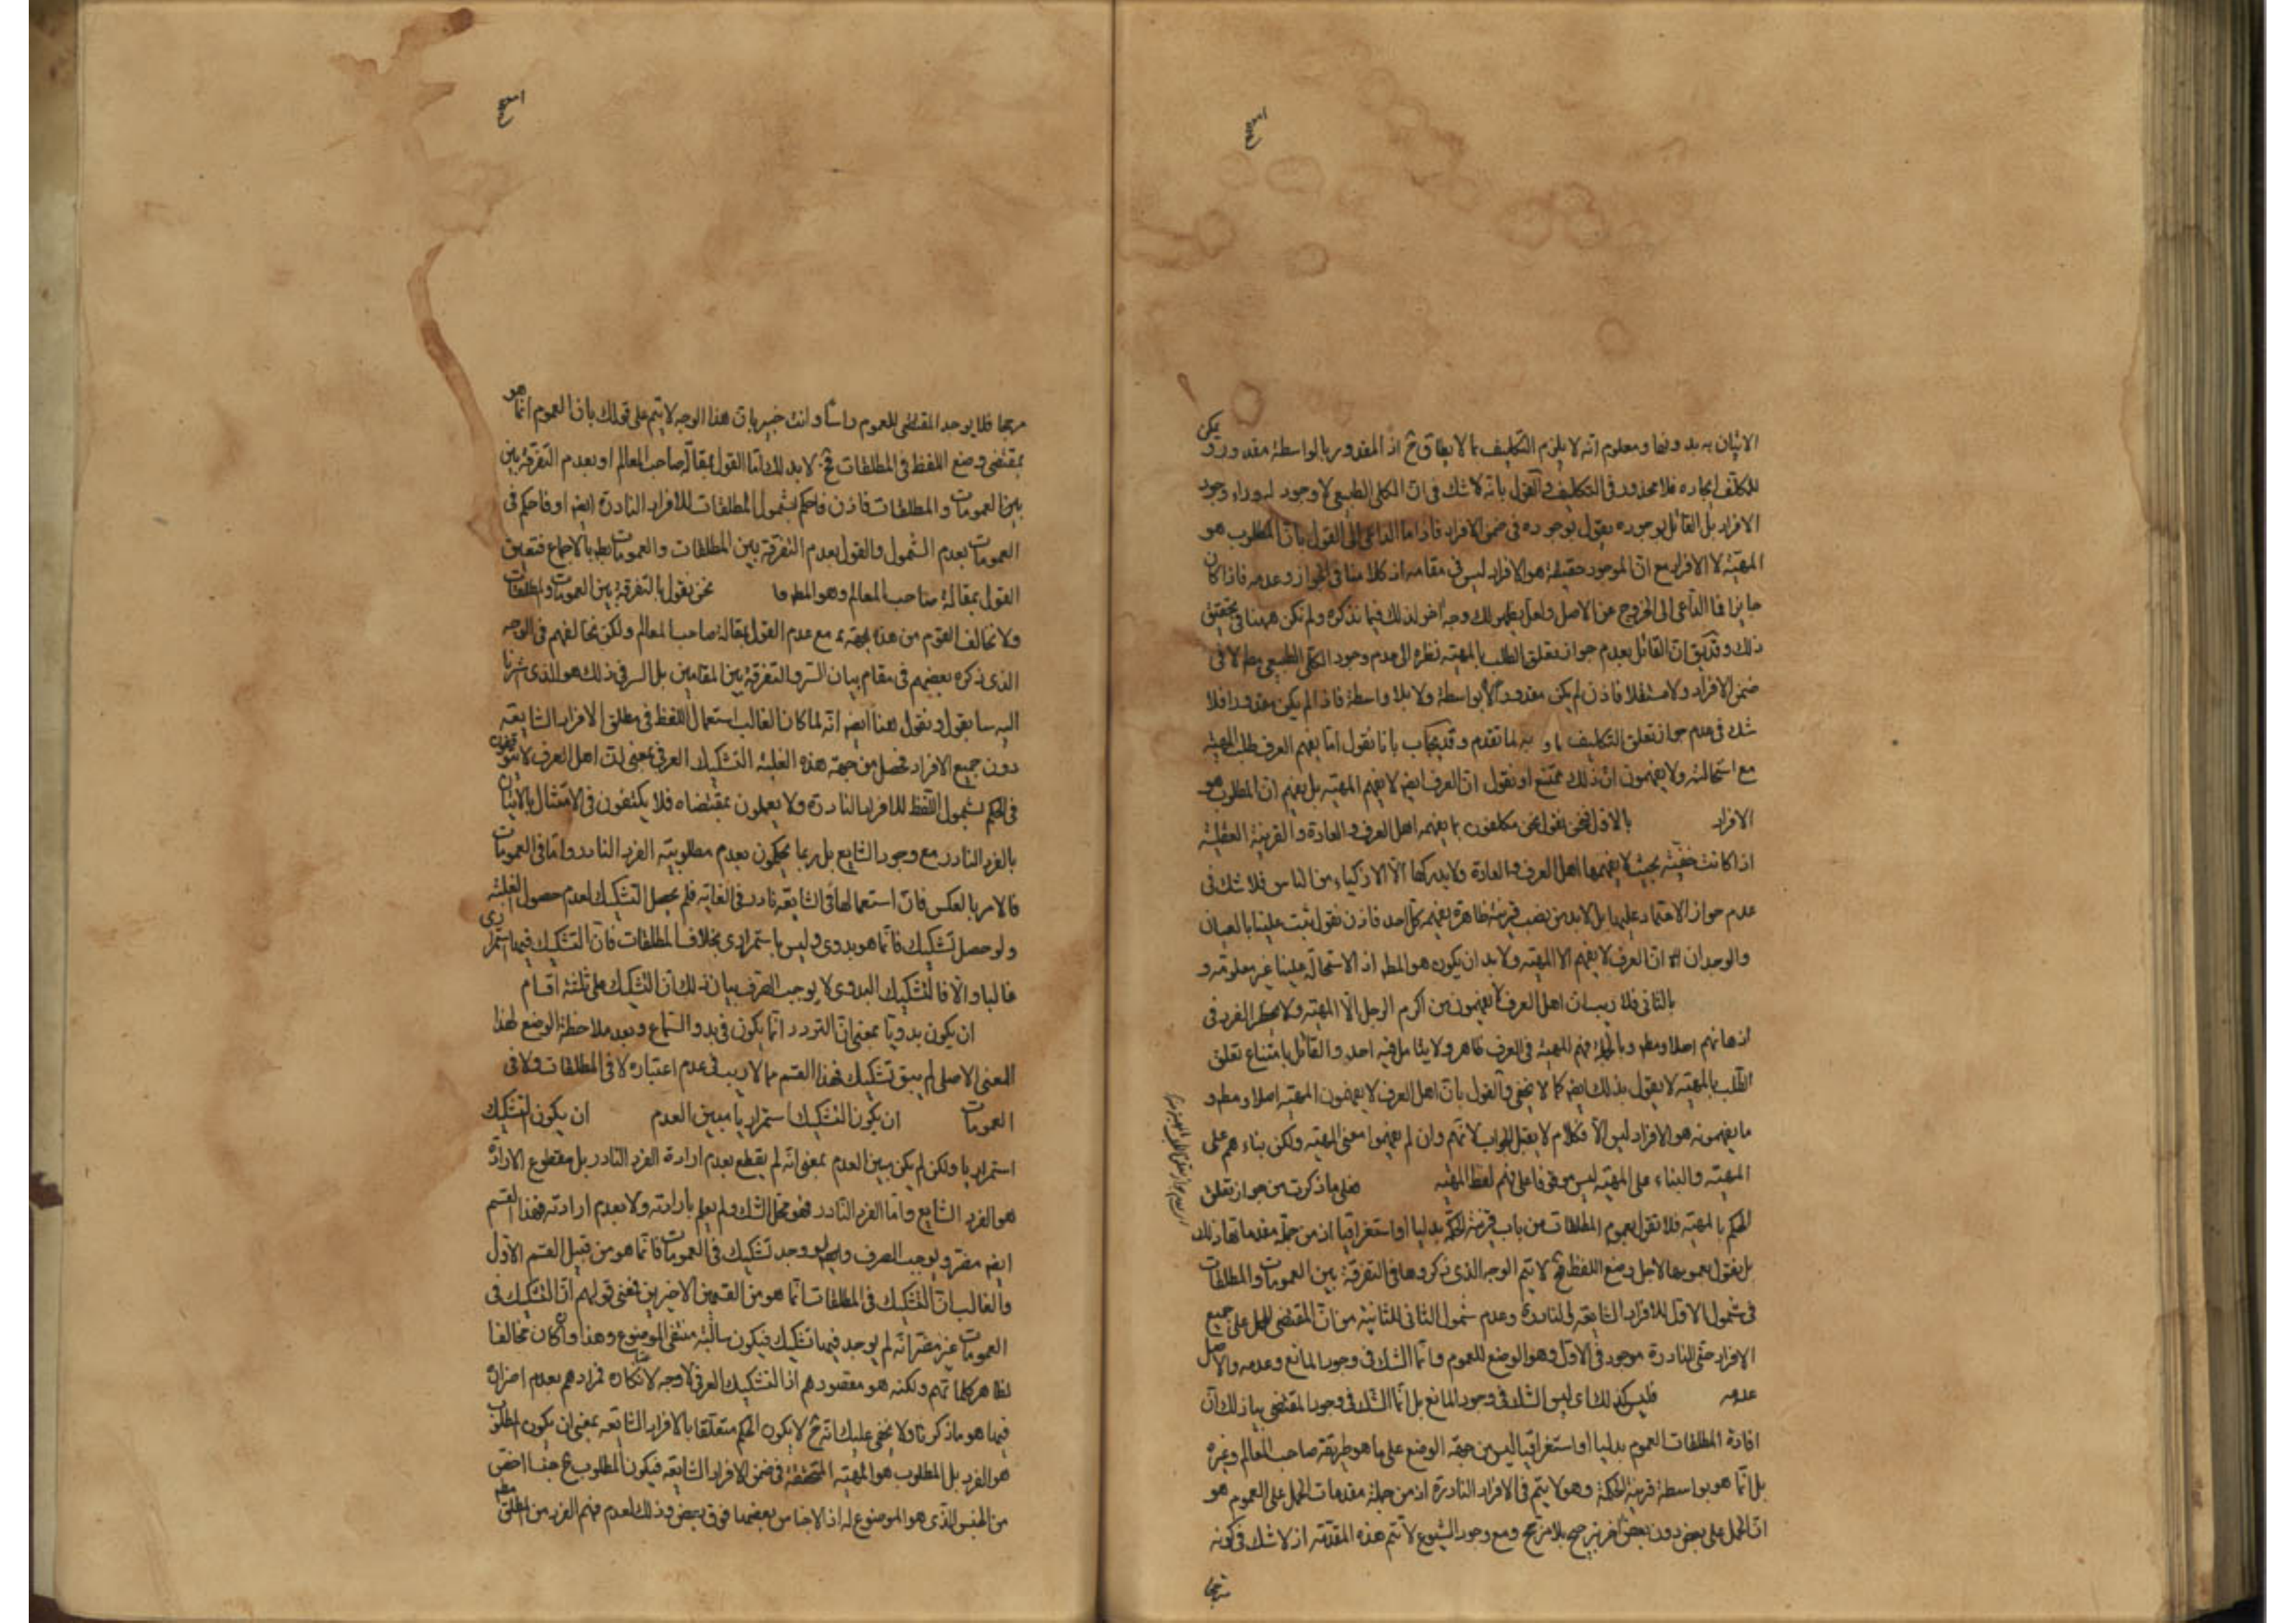 الاتيان به بدونها ومعلوم انه لا يلزم التكليف بما لا يطاق ح اذ المقدور بالواسطة مقدور و يمكن
للمكلف ايجاده فلا محذور في التكليف والقول بانه لا شك في ان الكلى الطبيعى لا وجود له وراء وجود
الافراد بل القائل بوجوده يقول بوجوده في ضمن الافراد فاذا ما الداعى الى القول بان المطلوب هو
المهية لا الافراد مع ان الموجود حقيقة هو الافراد ليس في مقامه اذ كلامنا في الجواز وعدمه فاذا كان
جايزا فما الداعى الى الخروج عن الاصل ولعل يظهر لك وجه اخر لذلك فيما نذكره ولم نكن ههنا في تحقيق
ذلك وقد يق ان القائل بعدم جواز تعلق الطلب بالمهية نظره الى عدم وجود الكلى الطبيعى مط لا في
ضمن الافراد ولا مستقلا فاذن لم يكن مقدورا لا بواسطة ولا بلا واسطة فاذا لم يكن مقدورا فلا
شك في عدم جواز تعلق التكليف به لما تقدم وقد يجاب بانا نقول اما يفهم العرف طلب المهية
مع استحالته ولا يفهمون ان ذلك ممتنع او نقول ان العرف ايض لا يفهم المهية بل يفهم ان المطلوب هو
الافراد بالاول فنحن نقول نحن مكلفون بما يفهمه اهل العرف والعادة والقرينة العقلية
اذا كانت خفية بحيث لا يفهمها اهل العرف والعادة ولا يدركها الا الاذكياء من الناس فلا شك في
عدم جواز الاعتماد عليها بل لابد من نصب قرينة ظاهرة يفهمه كل احد فاذن نقول ثبت علينا بالعيان
والوجدان ان العرف لا يفهم الا المهية ولا بد ان يكون هو المط اذ الاستحالة علينا غير معلومة و
بالثانى فلا ريب ان اهل العرف لا يفهمون من اكرم الرجل الا المهية ولا يخطر الفرد في
اذهانهم اصلا ومط وبالجملة فهم المهية في العرف ظاهر ولا يتامل فيه احد والقائل بامتناع تعلق
الطلب بالمهية لا يقول بذلك ايض كما لا يخفى والقول بان اهل العرف لا يفهمون المهية اصلا ومط و
ما يفهمونه هو الافراد ليس الا فكلام لا يقبل الجواب لانهم وان لم يفهموا معنى المهية ولكن بناءهم على
المهية والبناء على المهية ليس موقوفا على فهم لفظ المهية فعلى ما ذكرت من جواز تعلق
الحكم بالمهية فلا تقول بعموم المطلقات من باب قرينة الحكمة بدليا او استغراقيا اذ من جملة مقدماتها ذلك
بل يقول بعمومها لاجل وضع اللفظ فح لا يتم الوجه الذى ذكروها في التفرقة بين العمومات والمطلقات
في شمول الاول للافراد الشايعة والنادرة وعدم شمول الثانى للثانية من ان المقتضى للحمل على جميع
الافراد حتى النادرة موجود في الاول وهو الوضع للعموم وانما الشك في وجود المانع وعدمه والاصل
عدمه فليس كذلك اى ليس الشك في وجود المانع بل انما الشك في وجود المقتضى بيان ذلك ان
افادة المطلقات العموم بدليا او استغراقيا ليس من جهة الوضع على ما هو طريقة صاحب المعالم وغيره
بل انما هو بواسطة قرينة الحكمة وهو لا يتم في الافراد النادرة اذ من جملة مقدمات الحمل على العموم هو
ان الحمل على بعض دون بعض اخر ترجيح بلا مرجح ومع وجود الشيوع لا تتم هذه المقدمة اذ لا شك في كونه
مرجحا
مرجحا فلا يوجد المقتضى للعموم راسا وانت خبير بان هذا الوجه لا يتم على قولك بان العموم انما هو
بمقتضى وضع اللفظ في المطلقات فح لا بد لك اما القول بمقالة صاحب المعالم او بعدم التفرقة بين
بين العمومات والمطلقات فاذن فاحكم بشمول المطلقات للافراد النادرة ايض او فاحكم في
العمومات بعدم الشمول والقول بعدم التفرقة بين المطلقات والعمومات بط بالاجماع فتعين
القول بمقالة صاحب المعالم وهو المط نحن نقول بالتفرقة بين العمومات والمطلقات
ولا نخالف القوم من هذا الجهة مع عدم القول بمقالة صاحب المعالم ولكن نخالفهم في الوجه
الذى ذكره بعضهم في مقام بيان السر والتفرقة بين المقامين بل السر في ذلك هو الذى اشرنا
اليه سابقا ونقول هنا ايض انه لما كان الغالب استعمال اللفظ في مطلق الافراد الشايعة
دون جميع الافراد فحصل من جهة هذه الغلبة التشكيك العرفى بمعنى ان اهل العرف لا يتوقفون
في الحكم بشمول اللفظ للافراد النادرة ولا يعملون بمقتضاه فلا يكتفون في الامتثال بالاتيان
بالفرد النادر مع وجود الشايع بل ربما يحكمون بعدم مطلوبية الفرد النادر واما في العمومات
فالامر بالعكس فان استعمالها في الشايعة نادر في الغاية فلم يحصل التشكيك لعدم حصول الغلبة
ولو حصل تشكيك فانما هو بدوى وليس باستمرارى بخلاف المطلقات فان التشكيك فيها استمرارى
غالبا والا فالتشكيك البدوى لا يوجب الصرف بيان ذلك ان التشكيك على ثلثة اقسام
ان يكون بدويا بمعنى ان التردد انما يكون في بدو السماع وبعد ملاحظة الوضع لهذا
المعنى الاصلى لم يبق تشكيك فهذا القسم مما لا ريب في عدم اعتباره لا في المطلقات ولا في
العمومات ان يكون التشكيك استمراريا مبين العدم ان يكون التشكيك
استمراريا ولكن لم يكن مبين العدم بمعنى انه لم يقطع بعدم ارادة الفرد النادر بل مقطوع الارادة
هو الفرد الشايع واما الفرد النادر فهو محل الشك ولم يعلم بارادته ولا بعدم ارادته فهذا القسم
ايض مضر ويوجب الصرف ولو وجد تشكيك في العمومات فانما هو من قبيل القسم الاول
والغالب ان التشكيك في المطلقات انما هو من القسمين الاخيرين فمعنى قولهم ان التشكيك في
العمومات غير مضر انه لم يوجد فيها تشكيك فيكون سالبة منتفى الموضوع وهذا وان كان مخالفا
لظاهر كلماتهم ولكنه هو مقصودهم اذ التشكيك العرفى لا وجه لانكاره فمرادهم بعدم اضراره
فيها هو ما ذكرنا ولا يخفى عليك انه ح لا يكون الحكم متعلقا بالافراد الشايعة بمعنى ان يكون المطلوب
هو الفرد بل المطلوب هو المهية المتحققة في ضمن الافراد الشايعة فيكون المطلوب ح جنسا اخص
من الجنس الذى هو الموضوع له اذ الاجناس بعضها فوق بعض وذلك لعدم فهم الفرد من المطلق مط